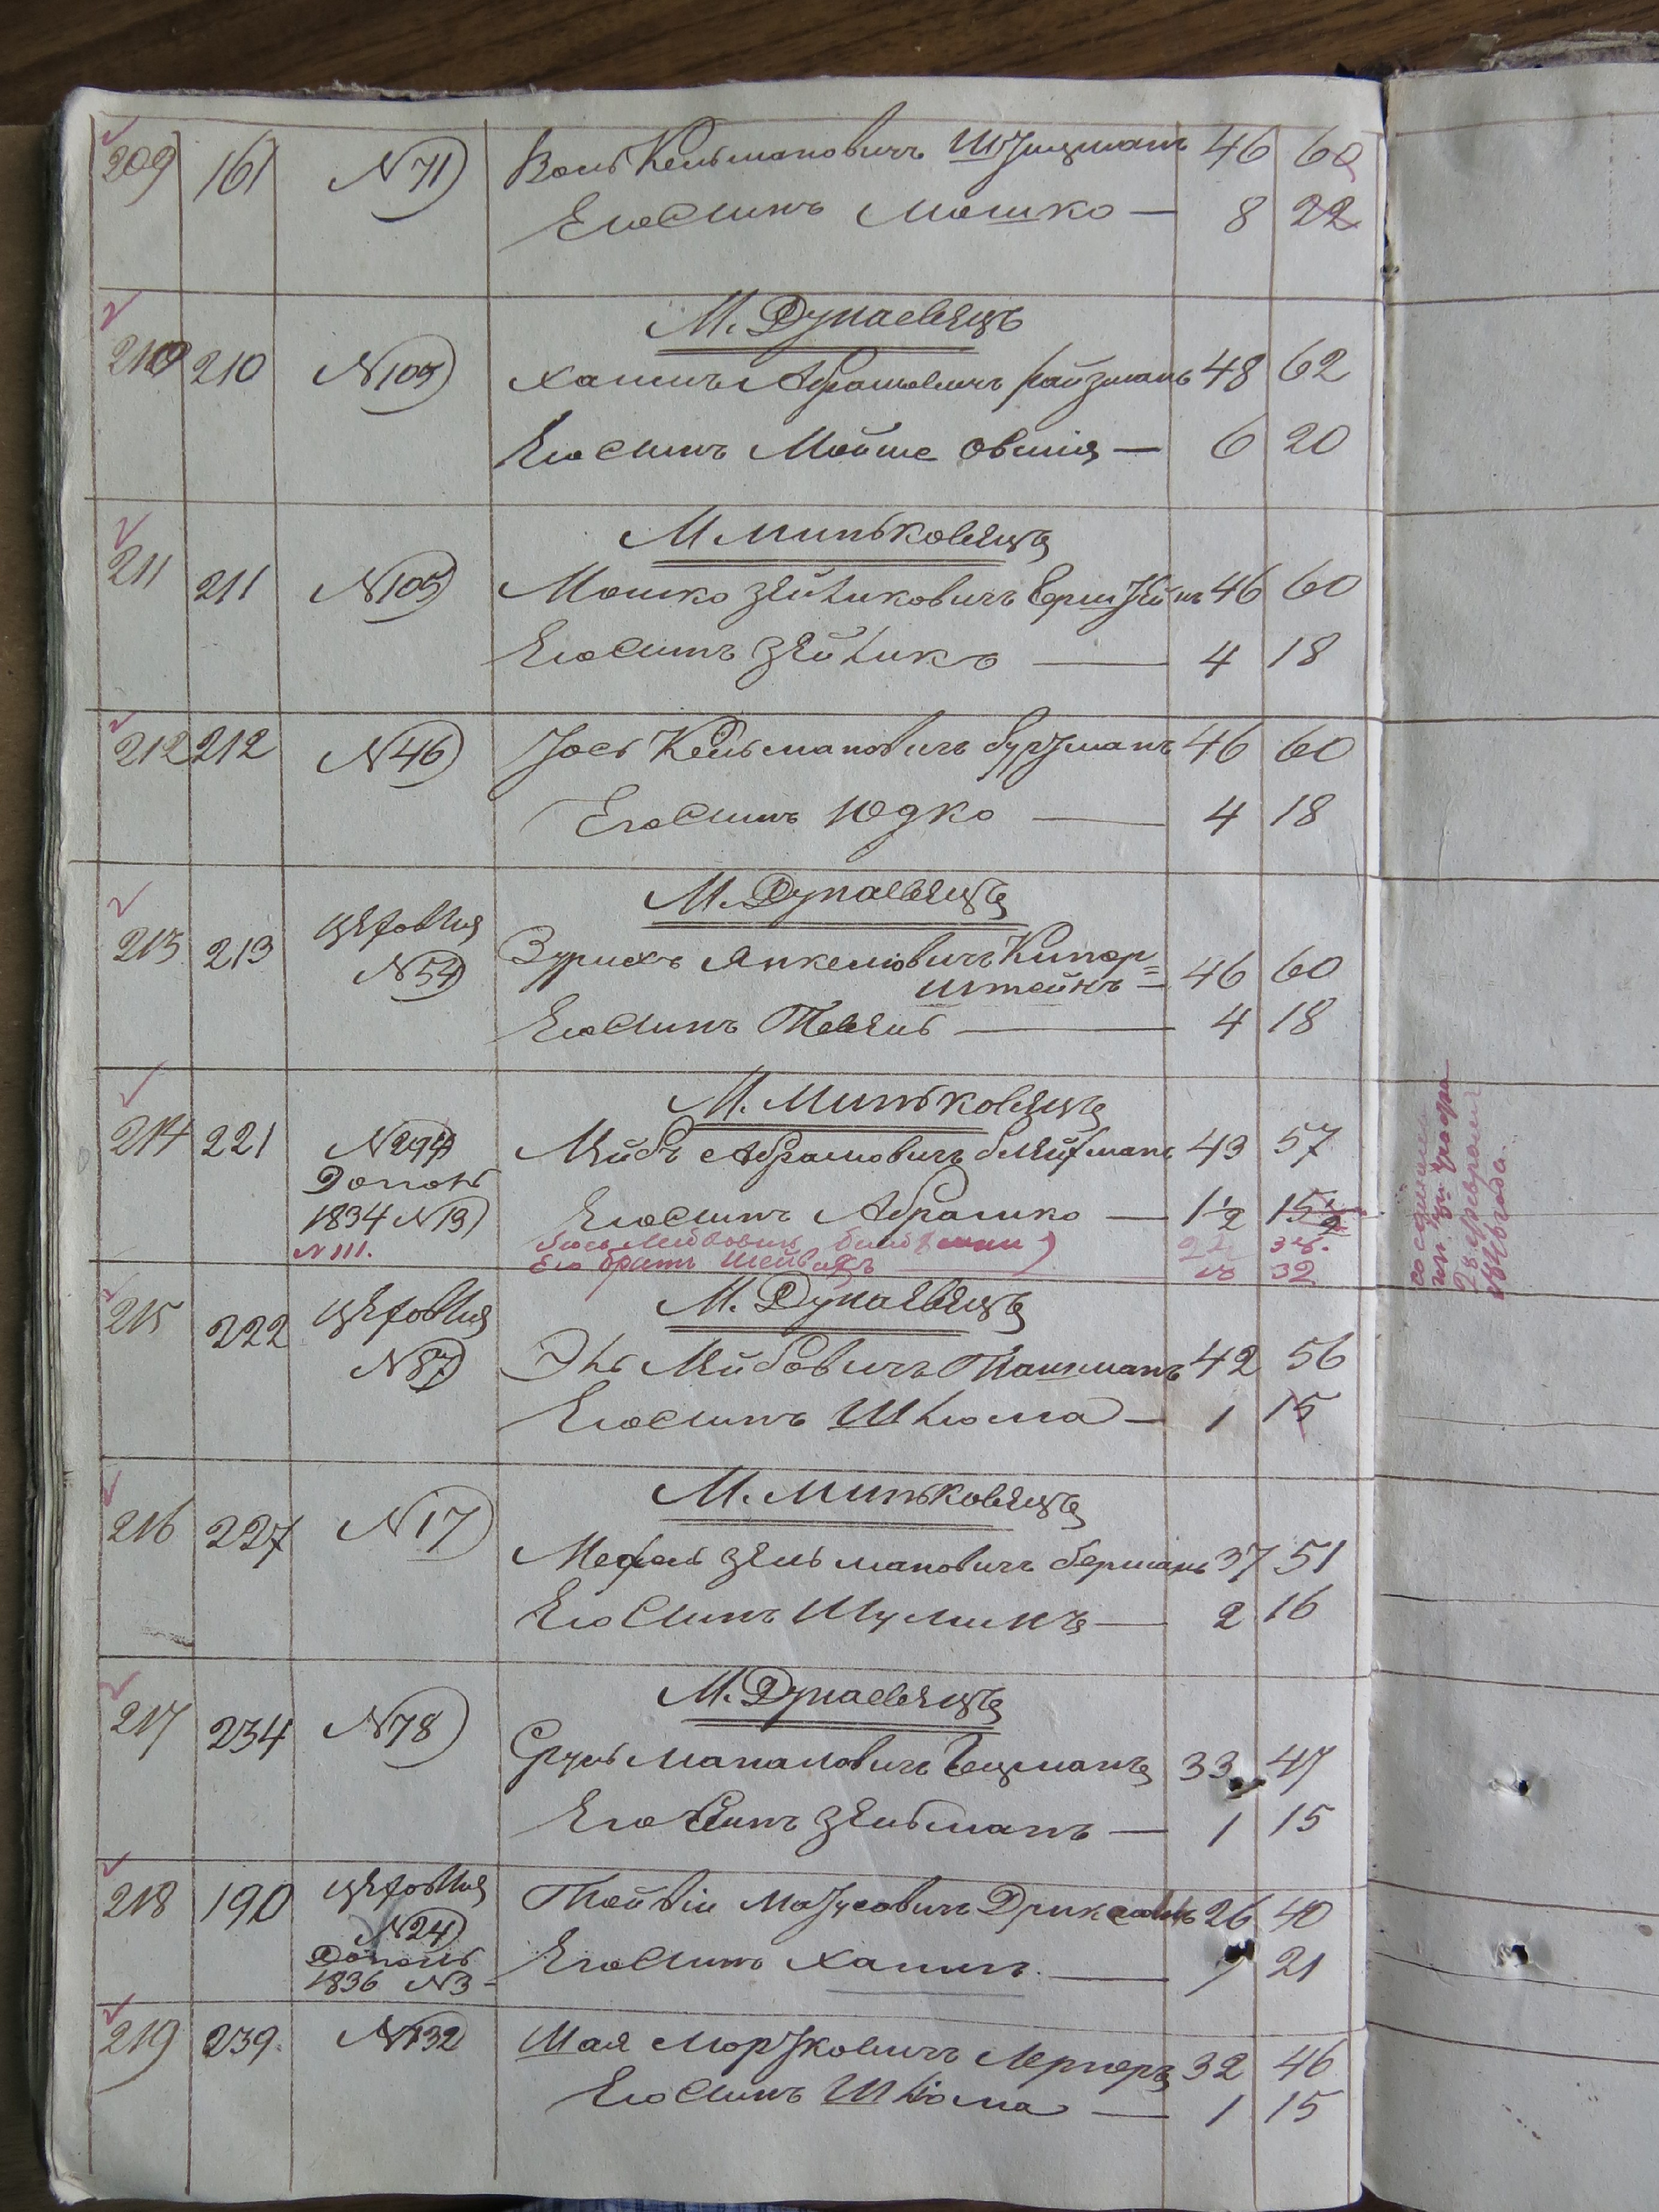 209 161 N 71 Воль Кельмановичъ Штуцманъ 46 60
Его Сынъ Мошко — 8 22
М. Дунаевецъ
210 210 N 109 Хаимъ Абрамовичъ Райзманъ 48 62
Его Сынъ Мойше Овшия — 6 20
М. Миньковецъ
211 211 N 105 Мошко Зейликовичъ 46 60
Его Сынъ Зейликъ — 4 18
212 212 N 46 Іось Кельмановичъ Гуртманъ 46 60
Его Сынъ Юдко — 4 18
М. Дунаевецъ
213 213 Цеховыя
N 54 Зурихъ Янкелювичъ Кипер=
штейнъ — 46 60
Его Сынъ Тевель — 4 18
М. Миньковецъ
214 221 N 294 Лейбъ Абрамовичъ Клейтманъ 43 57
Допол
1834 N 13) Его Сынъ Абрамко — 1½ 15½
N 111. Лейбовичъ
Его братъ 18 32
М. Дунаевецъ
215 222 Цеховыя
N 87 Эль Лейбовичъ Таишманъ 42 56
Его Сынъ Шлюма — 1 15
М. Миньковецъ
216 227 N 17 Мехель Зельмановичъ Берманъ 37 51
Его Сынъ Шулимъ — 2 16
М. Дунаевецъ
217 234 N 78 Сруль Маналовичъ Гецманъ 33 47
Его Сынъ Зельманъ — 1 15
218 190 Цеховыя
N 24 Тойвій Матусовичъ 26 40
Дополь
1836 N 3 — Его Сынъ Хаимъ — 7 21
219 239 N 132 Шая Мортковичъ Лернеръ 32 46
Его Сынъ Шлёма — 1 15